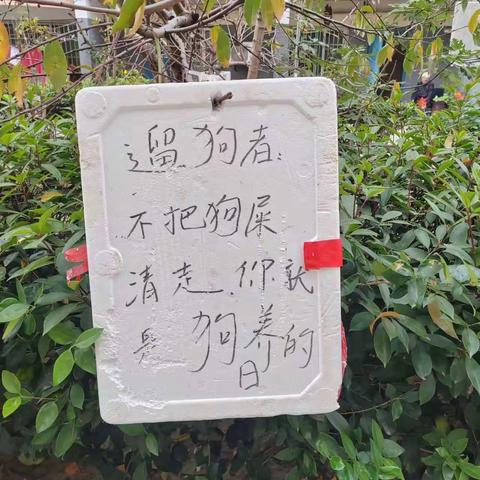 遛狗者:
不把狗屎
清走,你就
是狗养的
日